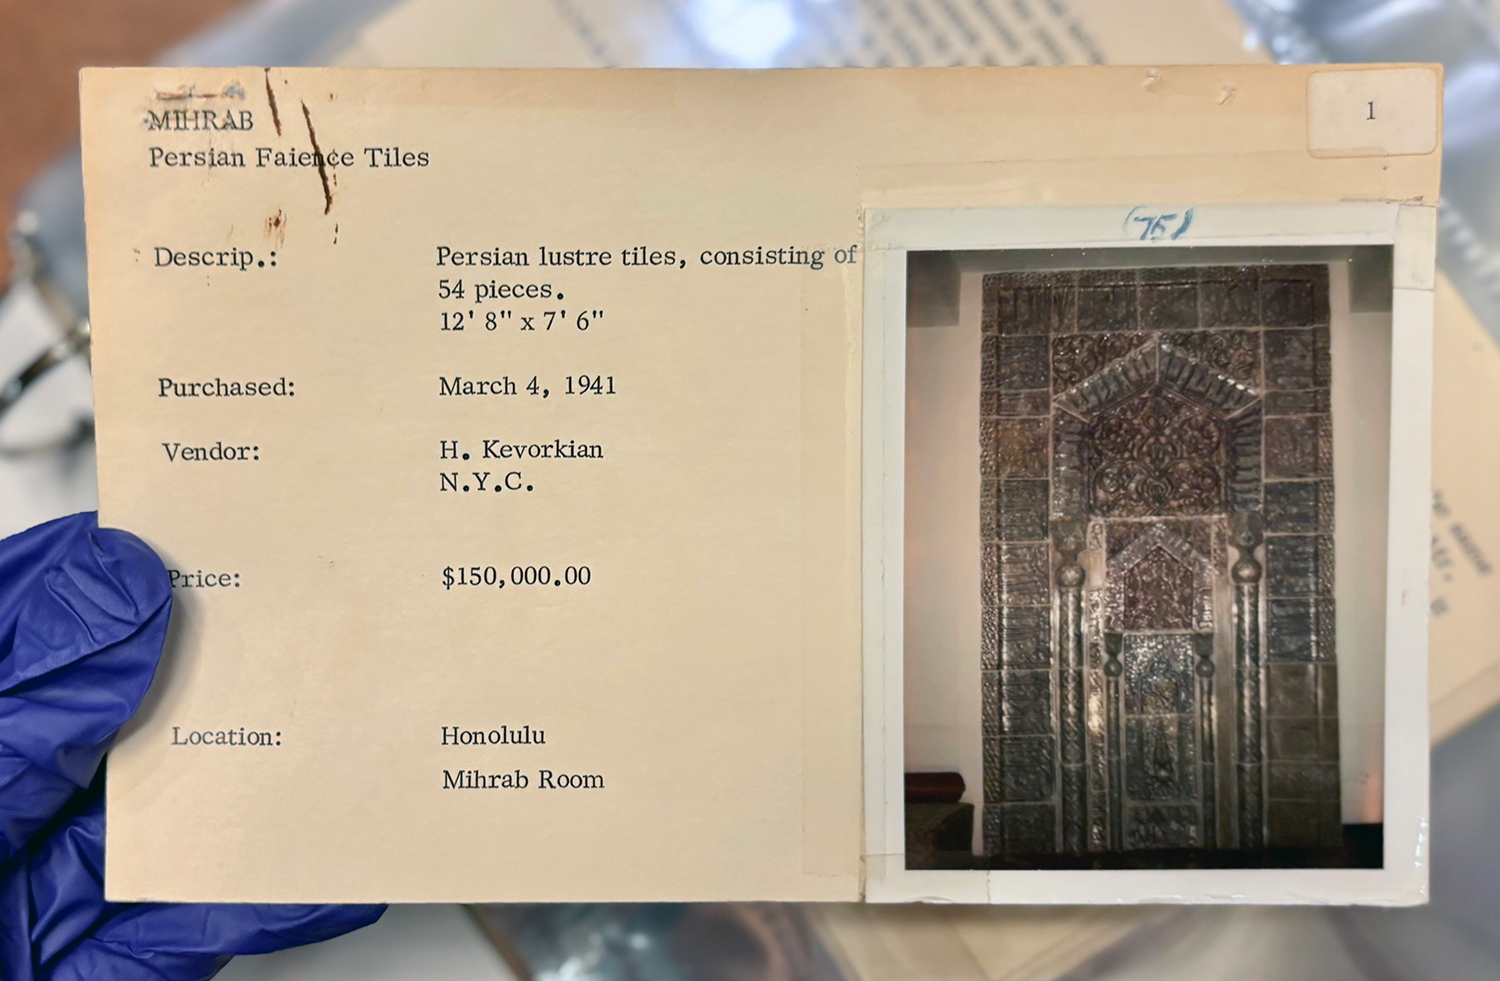 MIHRAB
Persian Faience Tiles
1
Descrip.: Persian lustre tiles, consisting of
54 pieces.
12' 8" x 7' 6"
Purchased: March 4, 1941
Vendor: H. Kevorkian
N.Y.C.
Price: $150,000.00
Location: Honolulu
Mihrab Room
(75)